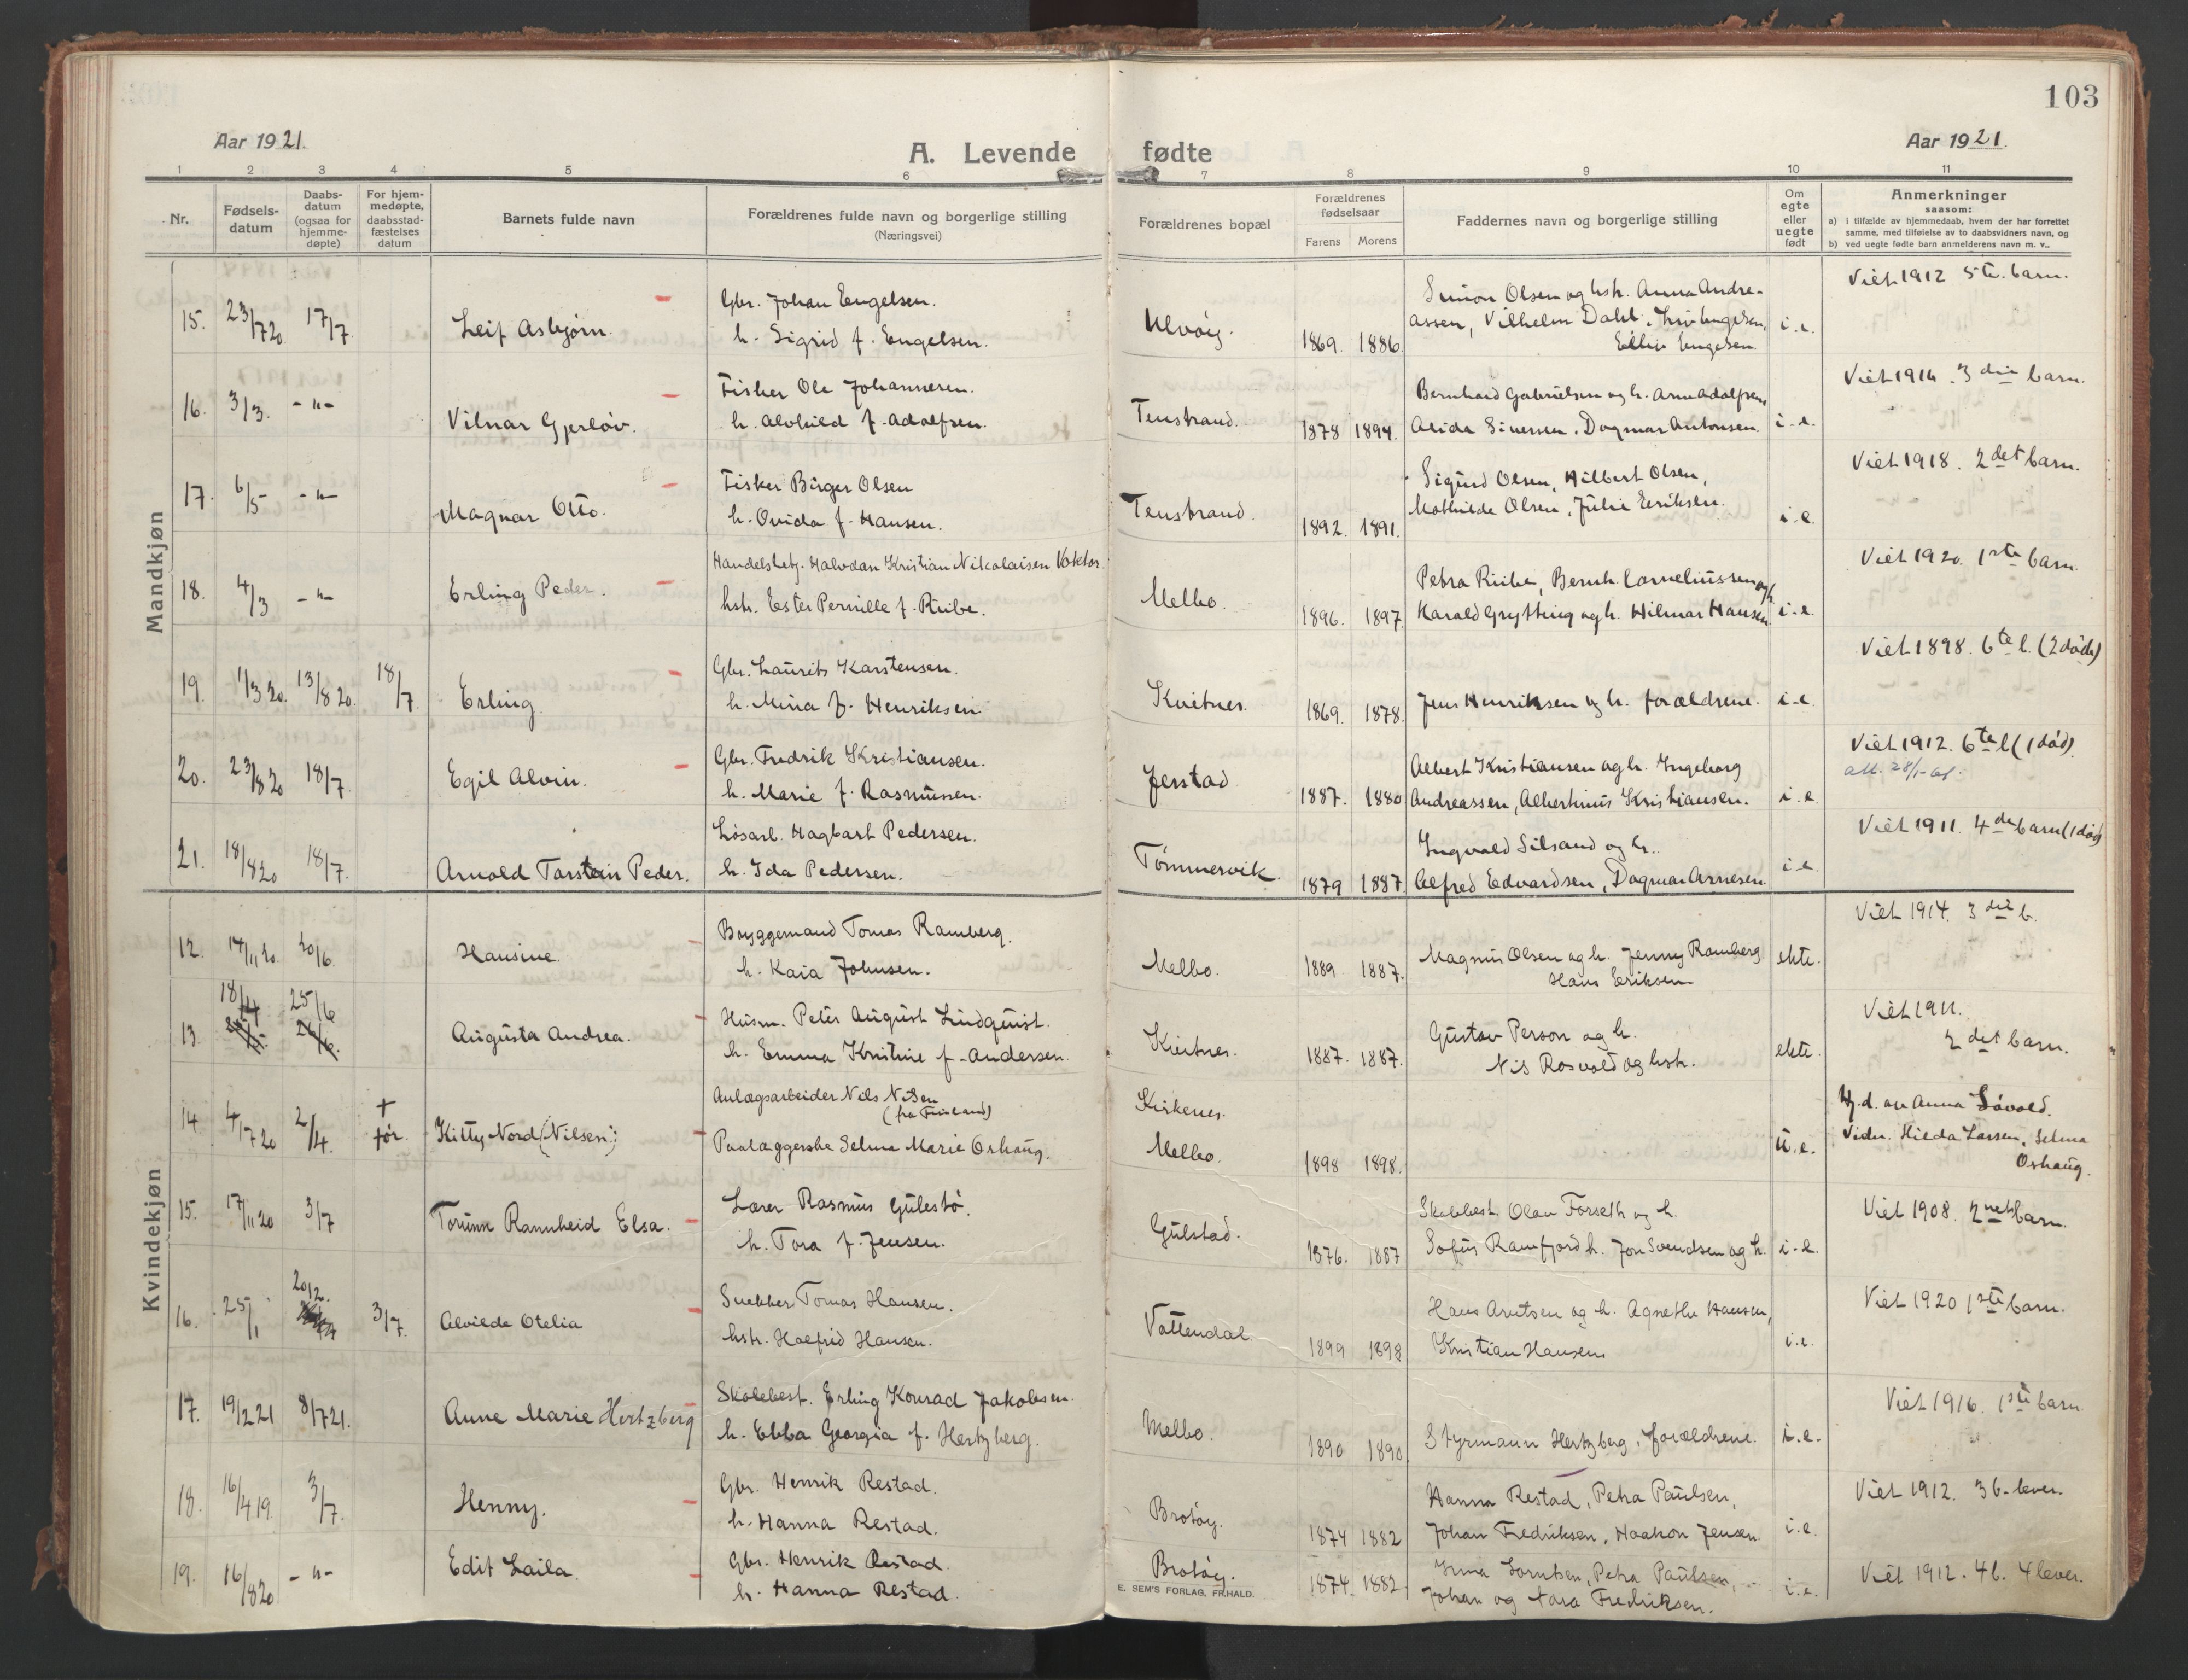 103
Aar 1921.
A. Levende fødte
Aar 1921.
1 2 3 4 5 6 7 8 9 10 11
Nr.
Fødsels-
datum
Daabs-
datum
(ogsaa for
hjemme-
døpte)
For hjem-
medøpte,
daabsstad-
fæstelses
datum
Barnets fulde navn
Forældrenes fulde navn og borgerlige stilling
(Næringsvei)
Forældrenes bopæl
Forældrenes
fødselsaar
Farens Morens
Faddernes navn og borgerlige stilling
Om
egte
eller
uegte
født
Anmerkninger
saasom:
a) i tilfælde av hjemmedaab, hvem der har forrettet
samme, med tilføielse av to daabsvidners navn, og
b) ved uegte fødte barn anmelderens navn m. v..
Mandkjøn
15. 23/7 20. 17/7. Leif Asbjørn.
Gbr. Johan Engelsen.
h. Sigrid f. Engelsen.
Ulvøy. 1869. 1886.
Simon Olsen og hstr. Anna Andre-
assen, Vilhelm Dahl, Engelsen,
Ellen Engelsen.
i.e.
Viet 1912 5te barn.
16. 3/3. -"- Vilnar Gjerløv.
Fisker Ole Johannesen.
h. Alvhild f. Adolfsen.
Tenstrand. 1878 1894.
Bernhard Gabrielsen og h. Arne Adolfsen,
Alida Sivessen. Dagmar Antonsen.
i.e.
Viet 1914. 3die barn.
17. 6/5 -"- Magnar Otto.
Fisker Birger Olsen
h. Ovida f. Hansen.
Tenstrand. 1892. 1891.
Sigurd Olsen, Hilbert Olsen,
Mathilde Olsen, Julie Eriksen.
i.e.
Viet 1918. 2det barn.
18. 4/3 -"- Erling Peder.
Handelsbetj. Halvdan Kristian Nikolaisen Voktor.
hstr. Ester Pernille f. Riibe.
Melbo. 1896. 1897.
Petra Riibe, Bernh. Corneliussen og h.
Harald Grytting og h. Hilmar Hansen
i.e.
Viet 1920. 1ste barn.
19. 1/3 20. 13/8 20. 18/7. Erling.
Gbr. Laurits Karstensen.
h. Mina f. Henriksen
Kvitnes. 1869. 1878.
Jens Henriksen og h. forældrene.
i.e.
Viet 1898. 6te b. (2 døde)
20. 23/8 20 18/7. Egil Alvin.
Gbr. Fredrik Kristiansen.
h. Marie f. Rasmussen.
Jerstad 1887. 1880
Albert Kristiansen og h. Ingeborg
Andreassen, Albertinus Kristiansen.
i.e.
Viet 1912. 6te b (1 død).
att. 28/1-61.
21. 18/8 20 18/7. Arnold Torstein Peder.
Løsarb. Hagbart Pedersen.
h. Ida Pedersen.
Tømmervik. 1879 1887.
Ingvald Silsand og h.
Alfred Edvardsen, Dagmar Arnesen.
i.e.
Viet 1911. 4de barn (1 død)
Kvindekjøn
12. 14/11 20. 20/6. Hansine.
Bryggemand Tomas Ramberg.
h. Kaia Johnsen.
Melbo. 1889 1887.
Magnus Olsen og h. Jenny Ramberg
Hans Eriksen
ekte.
Viet 1914. 3die b.
13. 18/4 25/6 Augusta Andrea.
Husm. Peter August Lindquist.
h. Emma Kristine f. Andersen.
Kvitnes. 1887. 1887.
Gustav Person og h.
Nis Rosvold og hstr.
ekte.
Viet 1911.
2det barn.
14. 4/7 20 2/4. † før. Kitty Nord (Nilsen)
Anlægsarbeider Nils Nilsen
(fra Finland)
Paalæggerske Selma Marie Oshaug.
Kirkenes.
Melbo. 1898 1898.
u.e.
Hj.d. av Anna Løvold.
Vidn. Hilda Larsen, Selma
Oshaug.
15. 17/11 20 3/7 Torunn Rannheid Elsa.
Lærer Rasmus Gulestø.
h. Tora f. Jensen.
Gulstad. 1876. 1887
Skolebest. Olav Forseth og h.
Sofus Ramfjord h. Jon Svendsen og h.
i.e.
Viet 1908. 2net barn.
16. 25/1 20/2. 3/7. Alvilde Otelia
Snekker Tomas Hansen.
hstr. Halfrid Hansen.
Vottendal. 1899 1898
Hans Arntsen og h. Agnethe Hansen,
Kristian Hansen
i.e.
Viet 1920 1ste barn.
17. 19/2 21 8/7 21. Anne Marie Hertzberg
Skolebest. Erling Konrad Jakobsen.
h. Ebba Georgia f. Hertzberg.
Melbo. 1890 1890
Styrmann Hertzberg, forældrene.
i.e.
Viet 1916. 1ste barn.
18. 16/4 19 3/7. Henny.
Gbr. Henrik Restad.
h. Hanna Restad.
Brotøy. 1874 1882
Hanna Restad, Petra Paulsen,
Johan Fredriksen, Haakon Jensen.
i.e.
Viet 1912. 3 b. lever.
19. 16/8 20 -"- Edit Laila.
Gbr. Henrik Restad.
h. Hanna Restad.
Brotøy. 1874. 1882
Irma Lorntsen, Petra Paulsen,
Johan og Tora Fredriksen.
i.e.
Viet 1912. 4 b. 4 lever.
E. SEM'S FORLAG, FR.HALD.